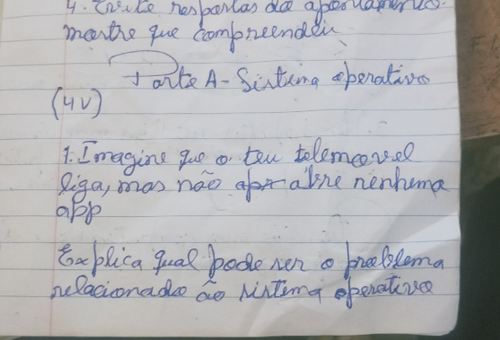 4. Evite respostas do apontamento.
mostre que compreendeu
Parte A - Sistema operativo
(4V)
1. Imagine que o teu telemovel
liga, mas não abre nenhuma
app
Explica qual pode ser o problema
relacionado ão sistema operativo